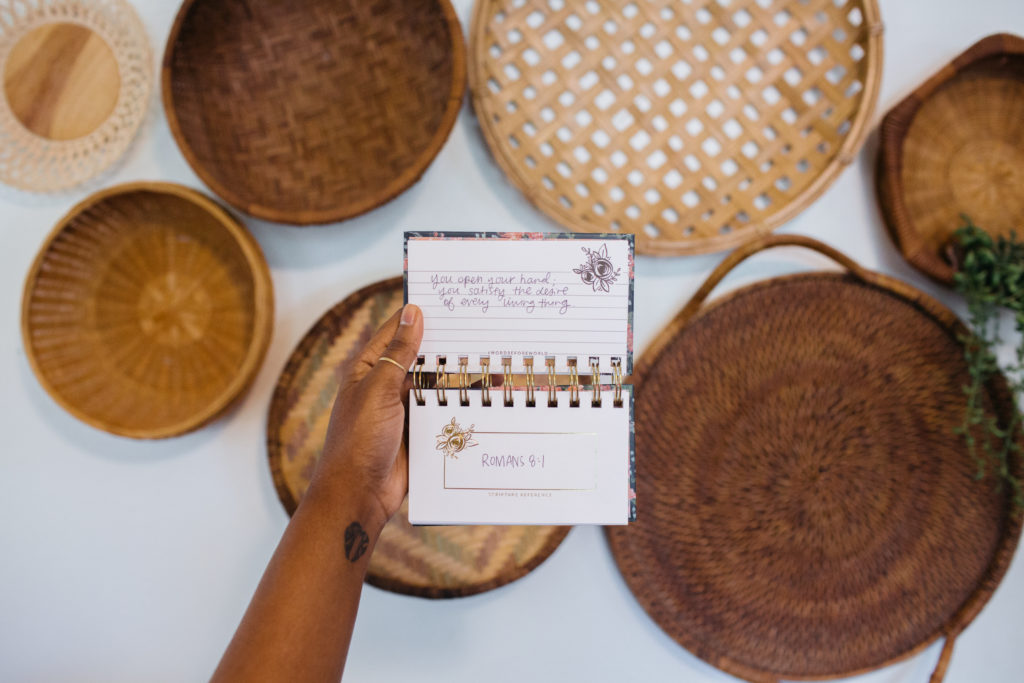 you open your hand;
you satisfy the desire
of every living thing
#WORDBEFOREWORLD
ROMANS 8:1
SCRIPTURE REFERENCE